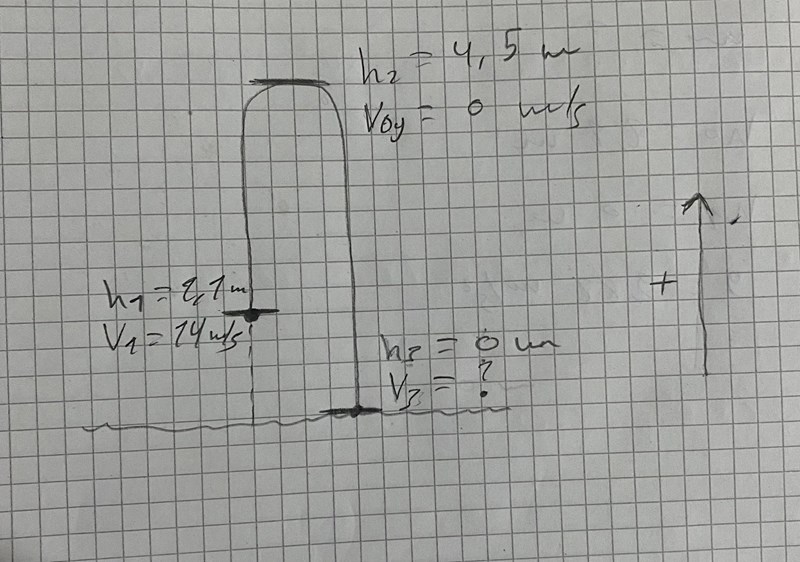 h₂ = 4,5 m
V₀y = 0 m/s
+
h₁ = 2,1 m
V₁ = 14 m/s
h₃ = 0 m
V₃ = ?